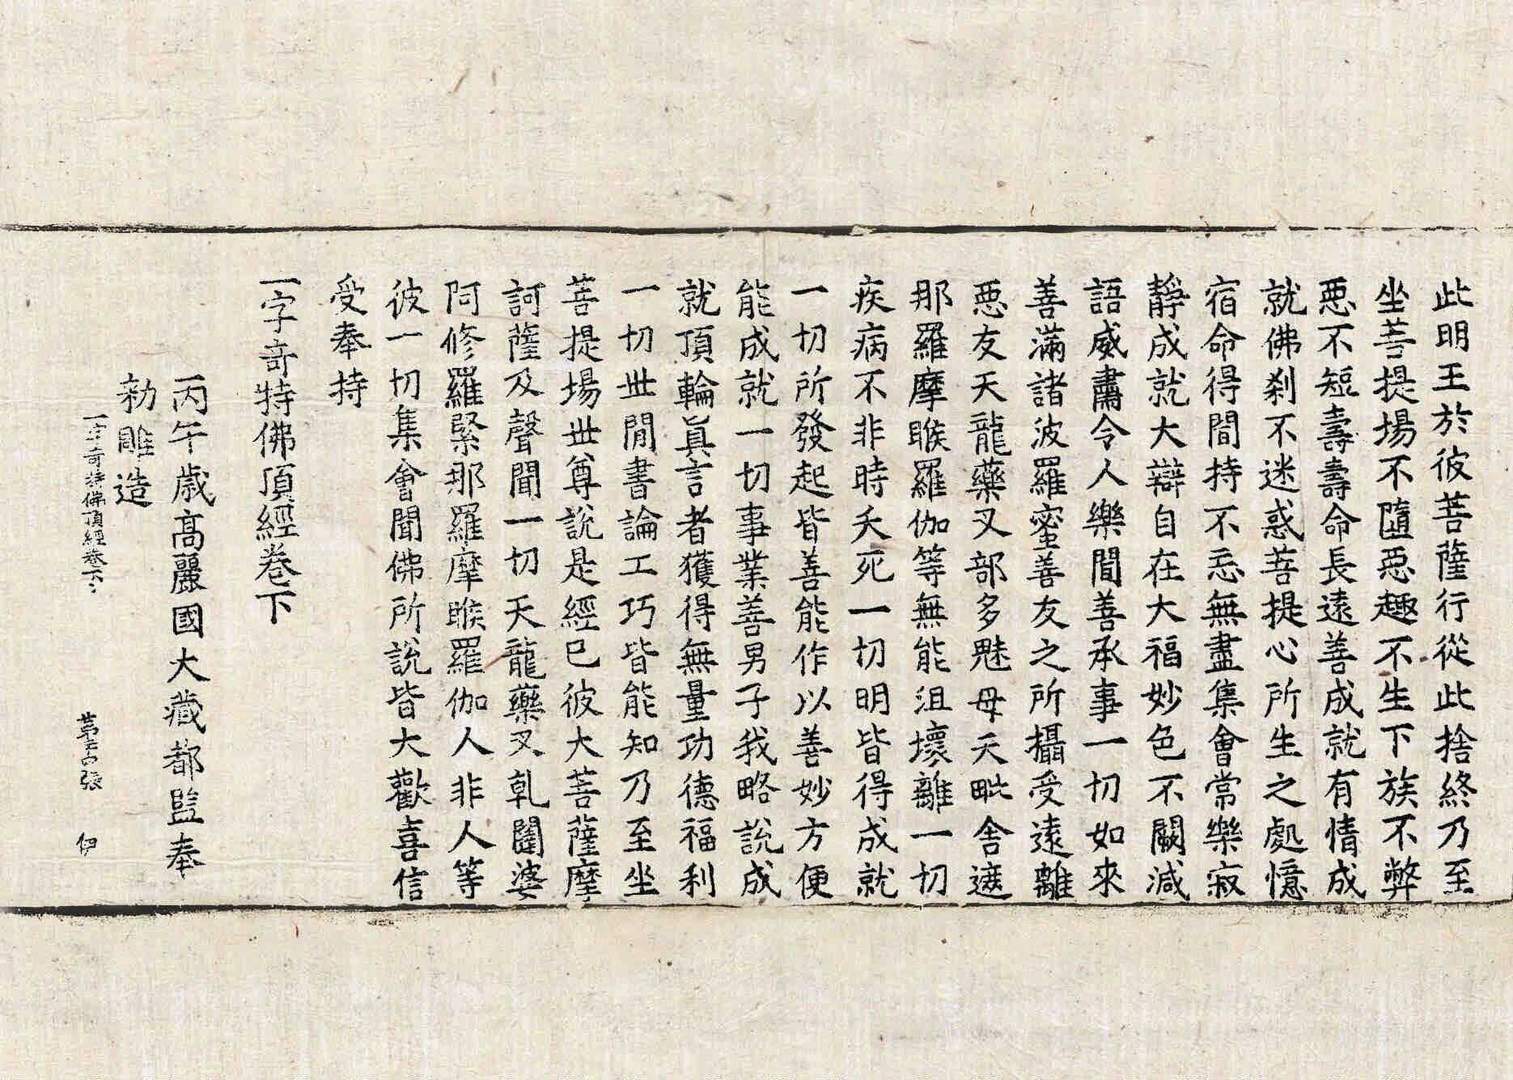 此明王於彼菩薩行從此捨終乃至
坐菩提場不隨惡趣不生下族不弊
惡不短壽壽命長遠善成就有情成
就佛刹不迷惑菩提心所生之處憶
宿命得閒持不忘無盡集會常樂寂
靜成就大辯自在大福妙色不闕減
語威肅令人樂聞善承事一切如來
善滿諸波羅蜜善友之所攝受遠離
惡友天龍藥叉部多魅母天毗舍遮
那羅摩睺羅伽等無能沮壞離一切
疾病不非時夭死一切明皆得成就
一切所發起皆善能作以善妙方便
能成就一切事業善男子我略說成
就頂輪眞言者獲得無量功德福利
一切世閒書論工巧皆能知乃至坐
菩提場世尊說是經已彼大菩薩摩
訶薩及聲聞一切天龍藥叉乹闥婆
阿修羅緊那羅摩睺羅伽人非人等
彼一切集會聞佛所說皆大歡喜信
受奉持
一字奇特佛頂經卷下
丙午歲高麗國大藏都監奉
勅雕造
一字奇特佛頂經卷下 第 張 伊